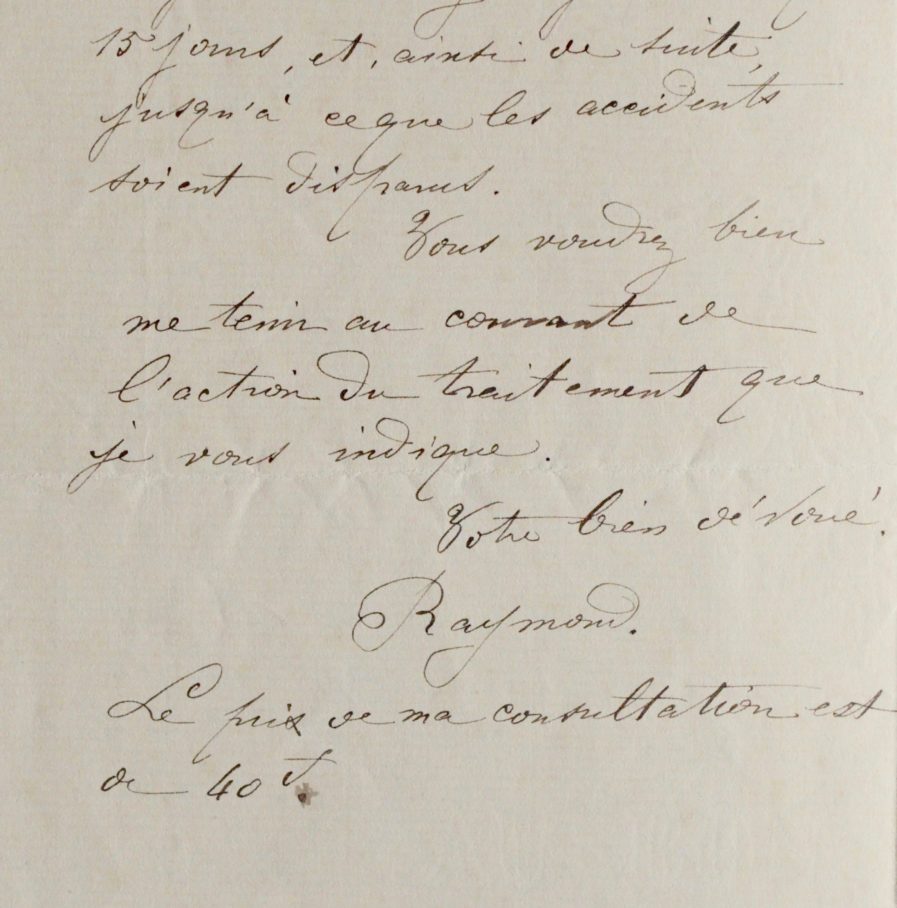 15 jours, et, ainsi de suite,
jusqu'à ce que les accidents
soient disparus.
Vous voudrez bien
me tenir au courant de
l'action du traitement que
je vous indique.
Votre bien dévoué.
Raymond.
Le prix de ma consultation est
de 40 f.